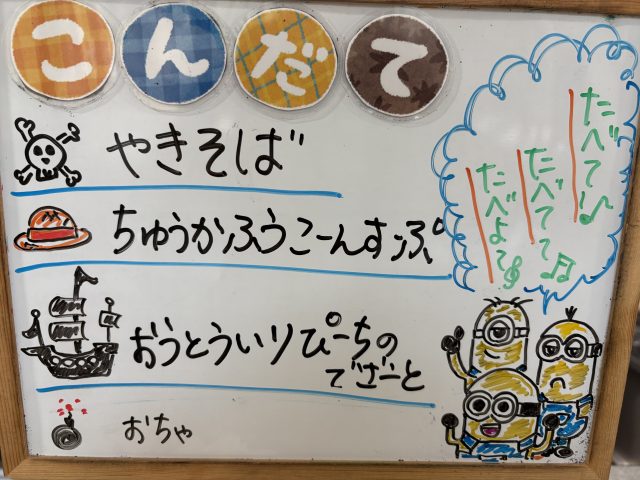 こんだて
やきそば
ちゅうかふうこーんすーぷ
おうとういりぴーちの
でざーと
おちゃ
たべて♪
たべてて♫
たべよて